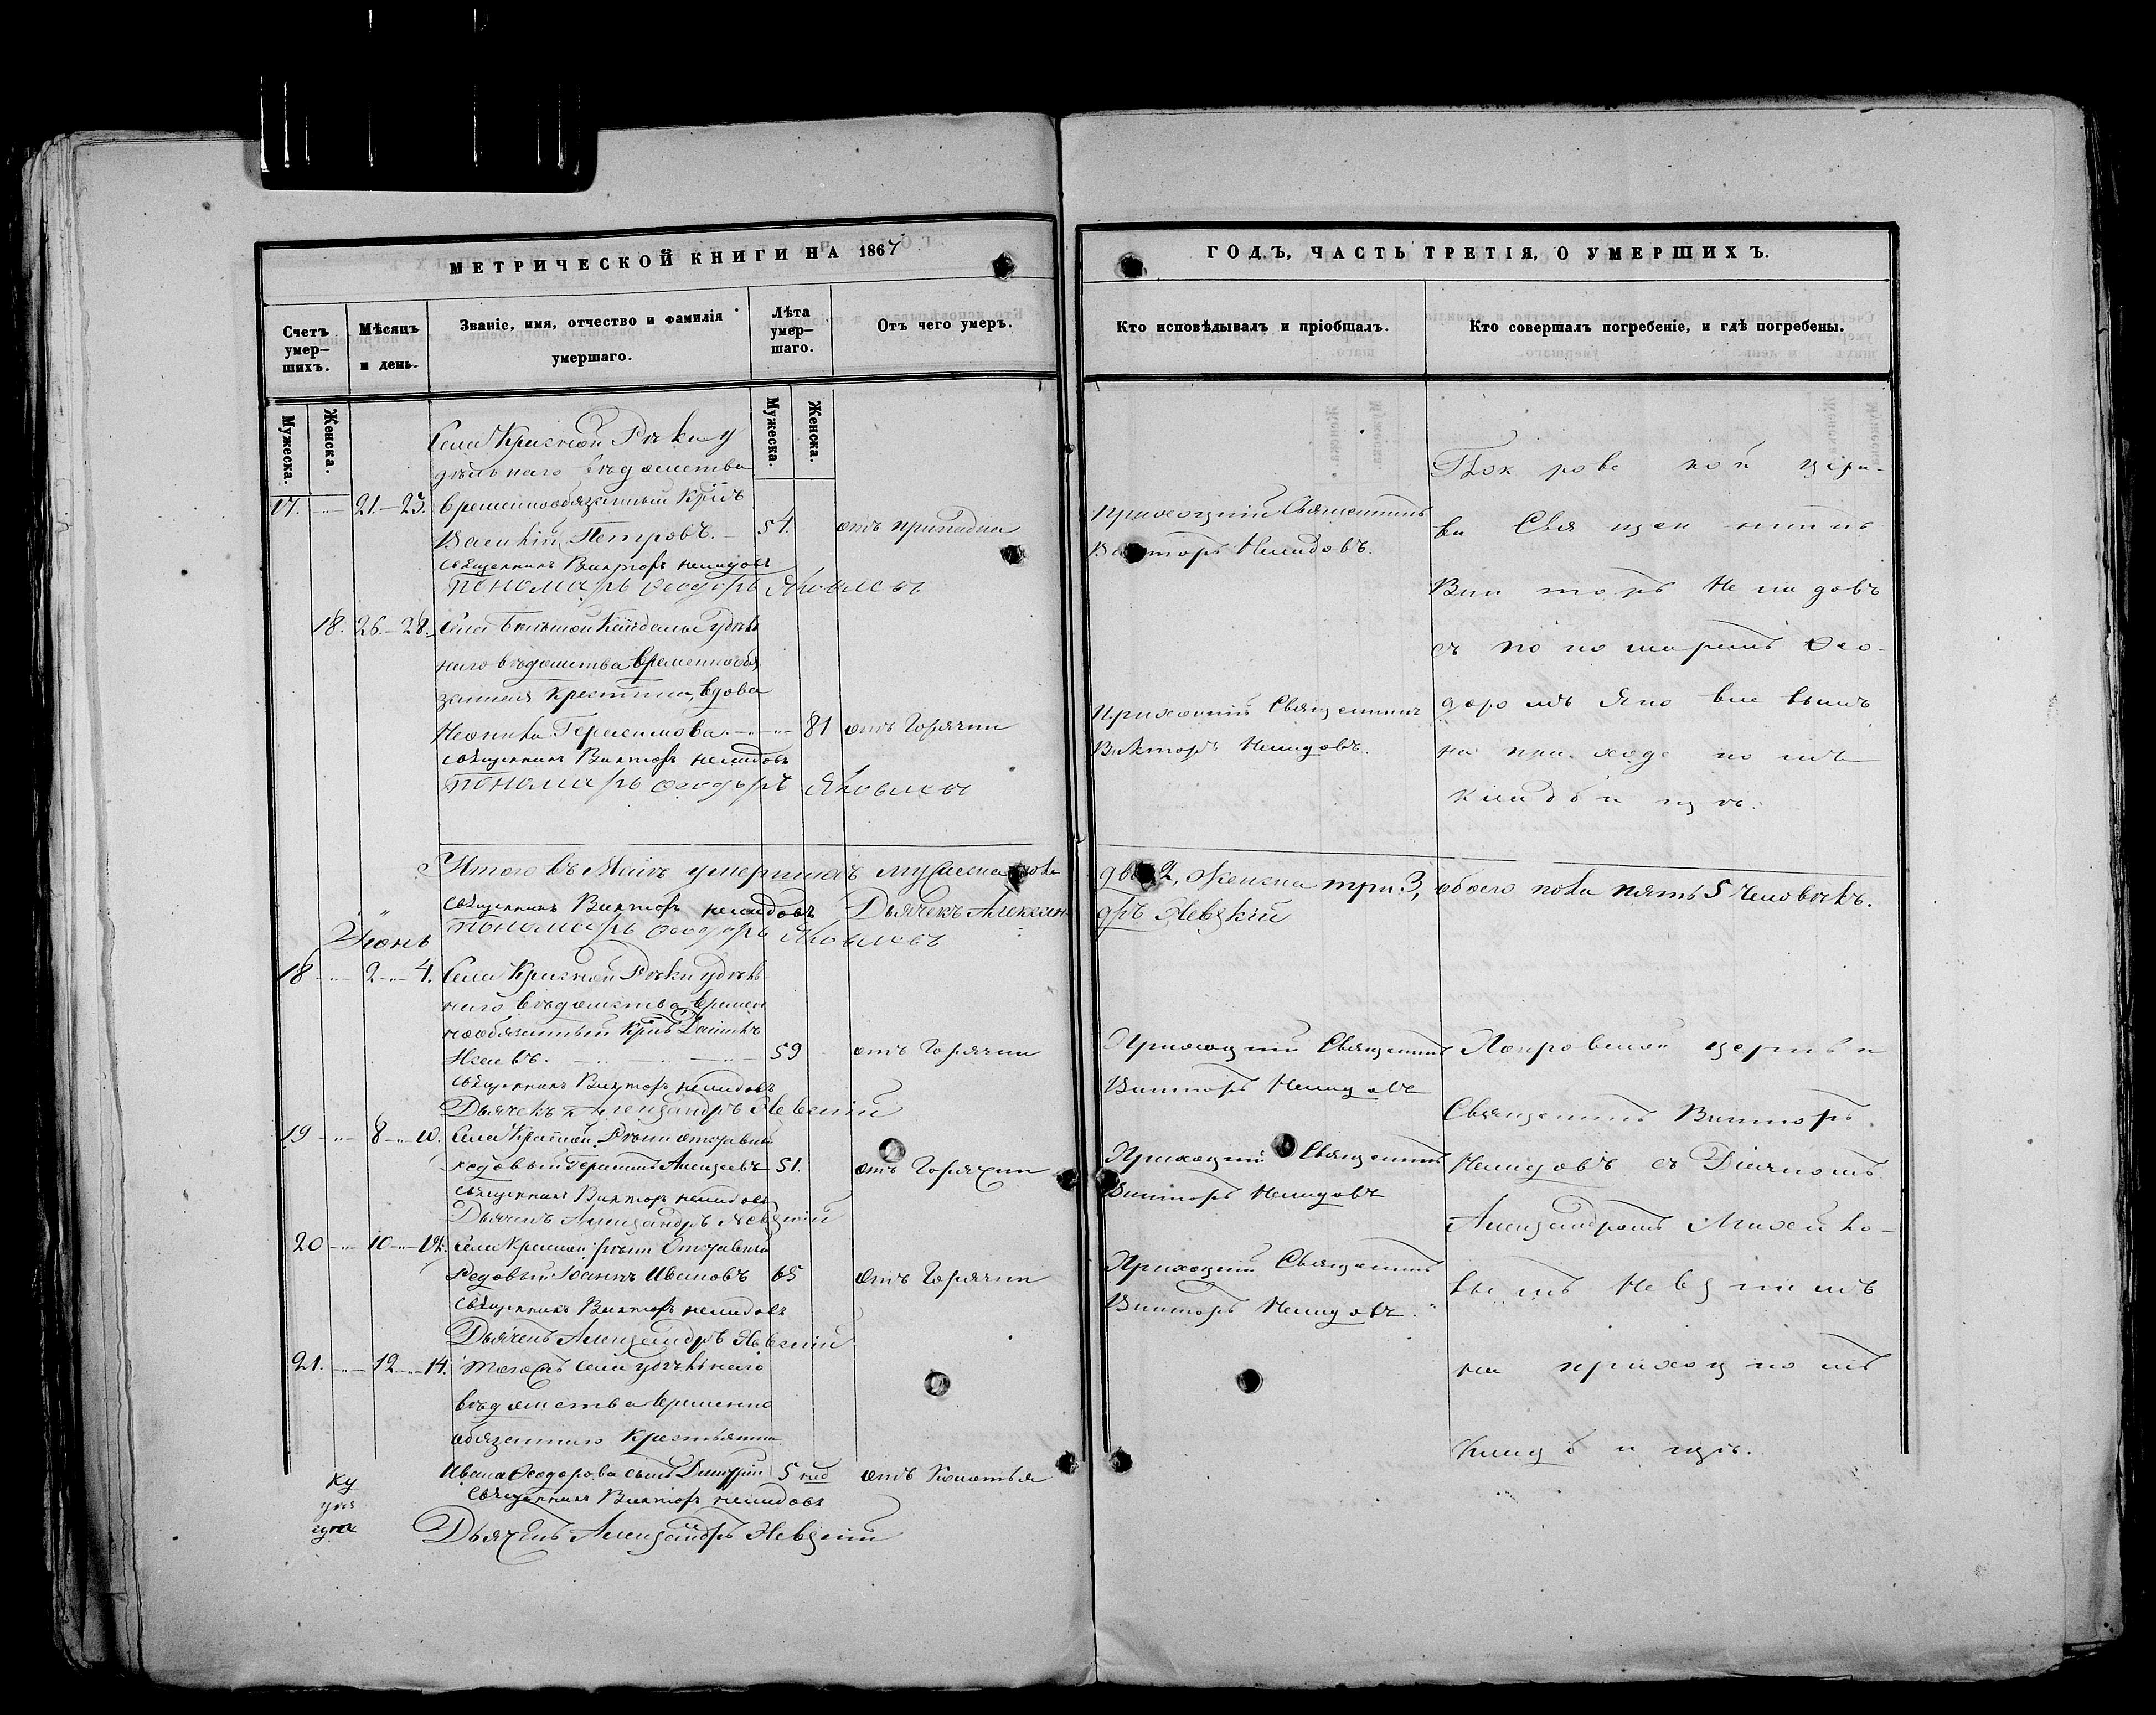 МЕТРИЧЕСКОЙ КНИГИ НА 1867
Счетъ умер-шихъ.
Мѣсяцъ и день.
Званіе, имя, отчество и фамилія умершаго.
Лѣта умер-шаго.
Отъ чего умеръ.
Мужеска.
Женска.
Мужеска.
Женска.
Села Красной Рѣки у
дѣльнаго вѣдомства
17. 21.–23. временнообязанный Кр͠нъ
Петровъ. 54.
Священникъ Викторъ Нелидовъ
Пономарь Ѳеодоръ Яковлевъ
18. 26.–28. Села Большой Кандалы удѣль
наго вѣдомства временнообя
занная крестьянка, вдова
Герасимова. 81 отъ Горячки
Священникъ Викторъ Нелидовъ
Пономарь Ѳеодоръ Яковлевъ
Итого въ Маѣ умершихъ мужеска пола
Священникъ Викторъ Нелидовъ Дьячекъ Алексан
Пономарь Ѳеодоръ Яковлевъ
Іюнь
18 2 4. Села Красной Рѣки удѣль
наго вѣдомства времен
нообязанный
59 отъ Горячки
Священникъ Викторъ Нелидовъ
Дьячекъ Александръ Невскій
19 8 10. Села Красной Рѣки отставный
рядовый Герасимъ Алексеевъ 51. отъ Горячки
Священникъ Викторъ Нелидовъ
Дьячекъ Александръ Невскій
20 10 12. Села Красной рѣки Отставный
Рядовый Іоаннъ Ивановъ 65 Отъ Горячки
Священникъ Викторъ Нелидовъ
Дьячекъ Александръ Невскій
21. 12 14. Тогожъ села удѣльнаго
вѣдомства временно
обязаннаго Крестьянина
Ивана Ѳеодорова сынъ Димитрій 5 нед отъ Колотья
Священникъ Викторъ Нелидовъ
Дьячекъ Александръ Невскій
ГОДЪ, ЧАСТЬ ТРЕТІЯ, О УМЕРШИХЪ.
Кто исповѣдывалъ и пріобщалъ.
Кто совершалъ погребеніе, и гдѣ погребены.
Приходскій Священникъ
Викторъ Нелидовъ.
Приходскій Священникъ
Викторъ Нелидовъ.
Покровской церк-
ви Священникъ
Викторъ Нелидовъ
съ пономаремъ Ѳео-
доромъ Яковлевымъ
на приходскомъ
кладбищѣ.
два 2, женска три 3, обоего пола пять 5 человѣкъ.
дръ Невскій
Приходскій Священникъ
Викторъ Нелидовъ
Приходскій Священникъ
Викторъ Нелидовъ
Приходскій Священникъ
Викторъ Нелидовъ.
Покровской церкви
Священникъ Викторъ
Нелидовъ съ Дьячкомъ
Александромъ
Невскимъ
на приходскомъ
кладбищѣ.